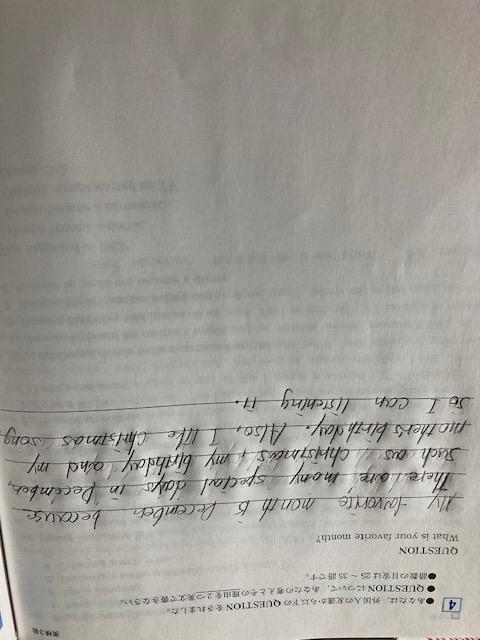 英検3級
4
● あなたは，外国人の友達から以下のQUESTIONをされました。
● QUESTIONについて，あなたの考えとその理由を2つ英文で書きなさい。
● 語数の目安は25～35語です。
QUESTION
What is your favorite month?
My favorite month is December because
there are many special days in December,
such as christmas, my birthday and my
mother's birthday. Also, I like christmas song,
so I can listening it.